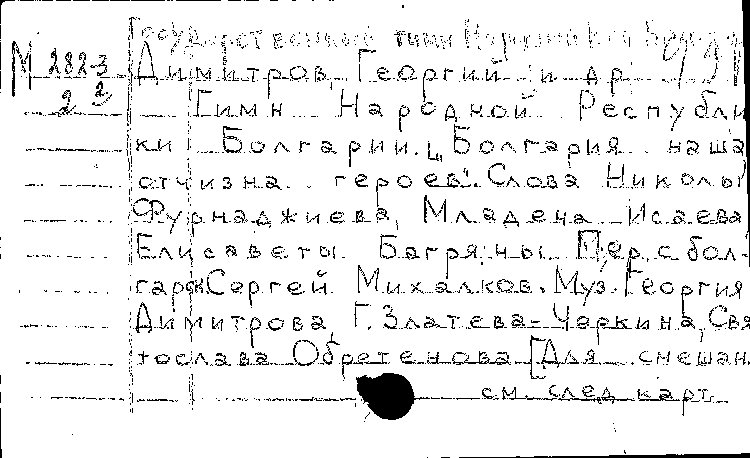 Государственный гимн Народной
М 282-3 Димитров, Георгий и др
2 2 Гимн Народной Республи
ки Болгарии. „Болгария наша
отчизна героев". Слова Николы
Фурнаджиева, Младена Исаева
Елисаветы Багряны. Пер. с бол-
гарск Сергей Михалков. Муз. Георгия
Димитрова, Г. Златева-Черкина, Свя
тослава Обретенова [Для смешан.
см. след карт.